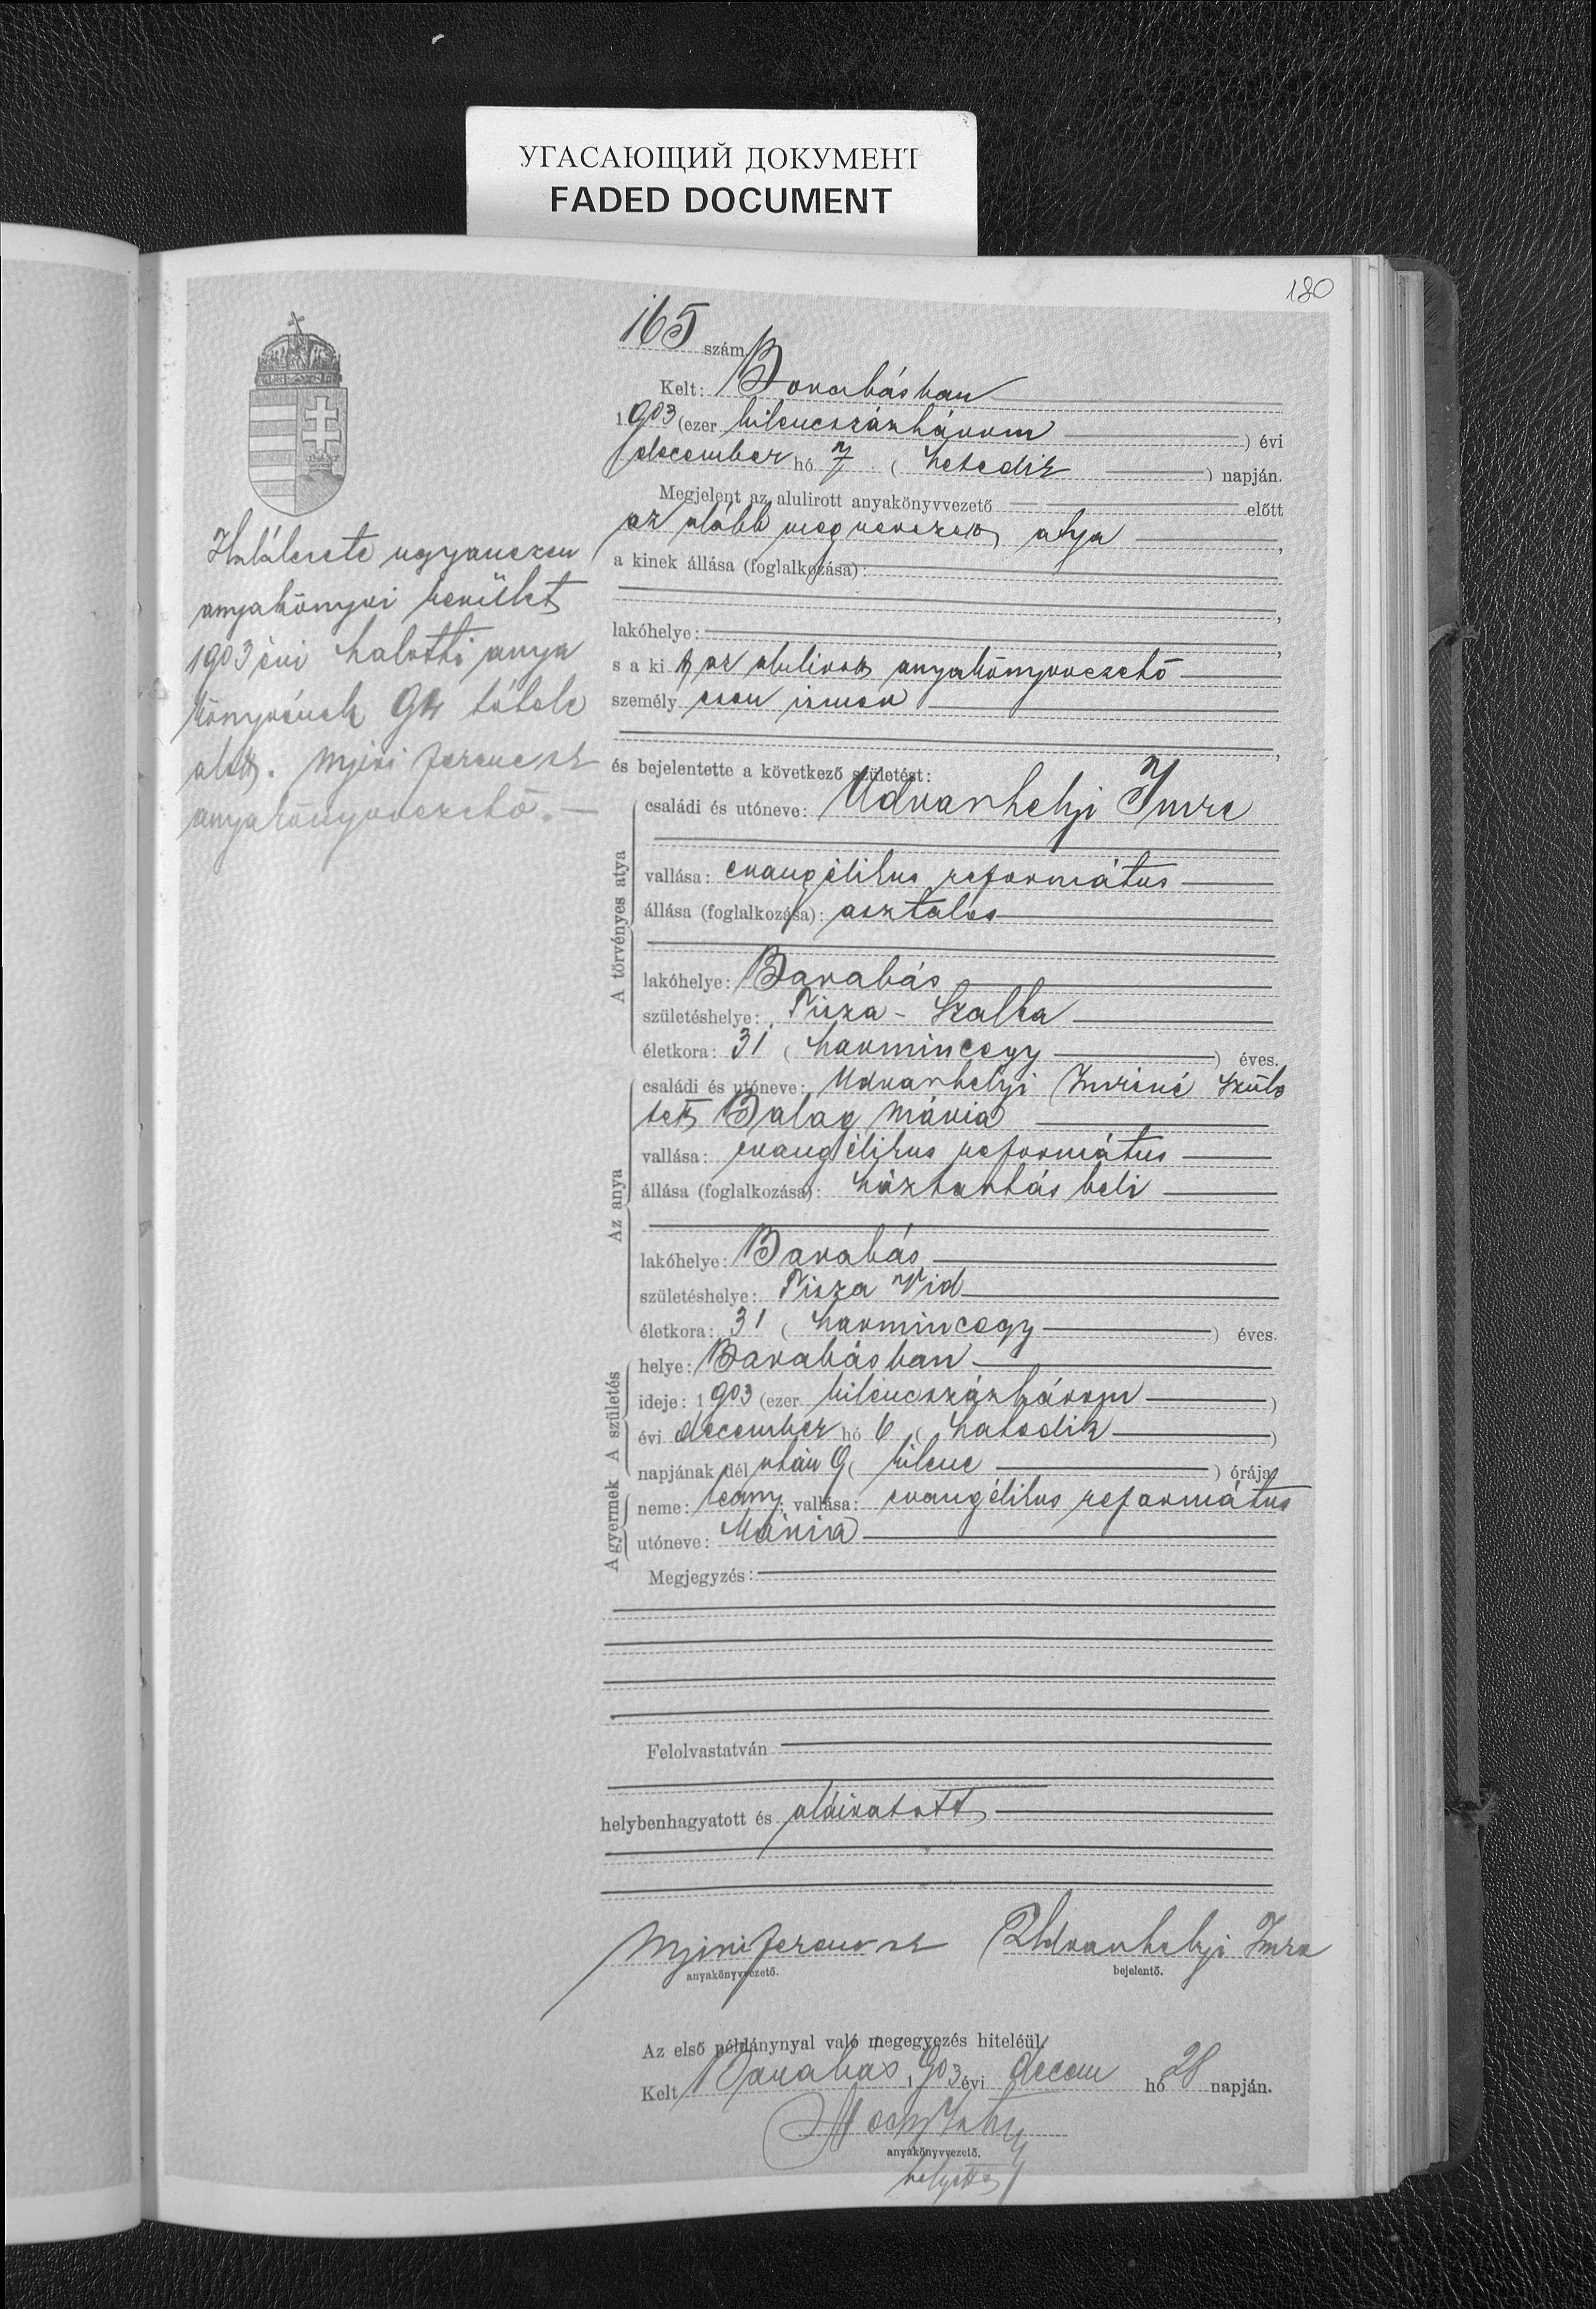 УГАСАЮЩИЙ ДОКУМЕНТ
FADED DOCUMENT
180
165 szám
Kelt: Barabásban
1903 (ezer kilencszázhárom) évi
december hó 7 (hetedik) napján.
Megjelent az alulirott anyakönyvvezető előtt
az alább megnevezett atya,
a kinek állása (foglalkozása):
,
lakóhelye: ,
s a kit az alulirott anyakönyvvezető
személyesen ismer
,
és bejelentette a következő születést:
Halálesete ugyanezen
anyakönyvi kerület
1903 évi halotti anya
könyvének 94 tétele
alatt. Ferencz
anyakönyvvezető. —
A törvényes atya
családi és utóneve: Udvarhelyi Imre
vallása: evangélikus református
állása (foglalkozása): asztalos
lakóhelye: Barabás
születéshelye: Tisza-Szalka
életkora: 31 (harminczegy) éves.
Az anya
családi és utóneve: Udvarhelyi Imréné szüle
tett Balag Mária
vallása: evangélikus református
állása (foglalkozása): háztartásbeli
lakóhelye: Barabás
születéshelye: Tisza Vid
életkora: 31 (harminczegy) éves.
A születés
helye: Barabásban
ideje: 1903 (ezer kilencszázhárom)
évi december hó 6 (hatodik)
napjának délután 9 (kilenc) órája
A gyermek
neme: leány, vallása: evangélikus református
utóneve: Mária
Megjegyzés:
Felolvastatván
helybenhagyatott és aláiratott
Ferencz Udvarhelyi Imre
anyakönyvvezető. bejelentő.
Az első példánynyal való megegyezés hiteléül.
Kelt Barabás 1903 évi decem hó 28 napján.
anyakönyvvezető.
helyettes